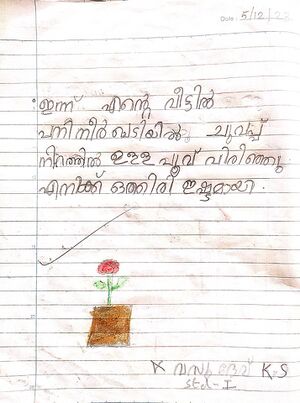 Date: 5/12/23
ഇന്ന് എന്റെ വീട്ടിൽ
പനിനീർ ചെടിയിൽ ചുവപ്പ്
നിറത്തിൽ ഉള്ള പൂവ് വിരിഞ്ഞു
എനിക്ക് ഒത്തിരി ഇഷ്ടമായി.
K വസുദേവ് K.S
std-I